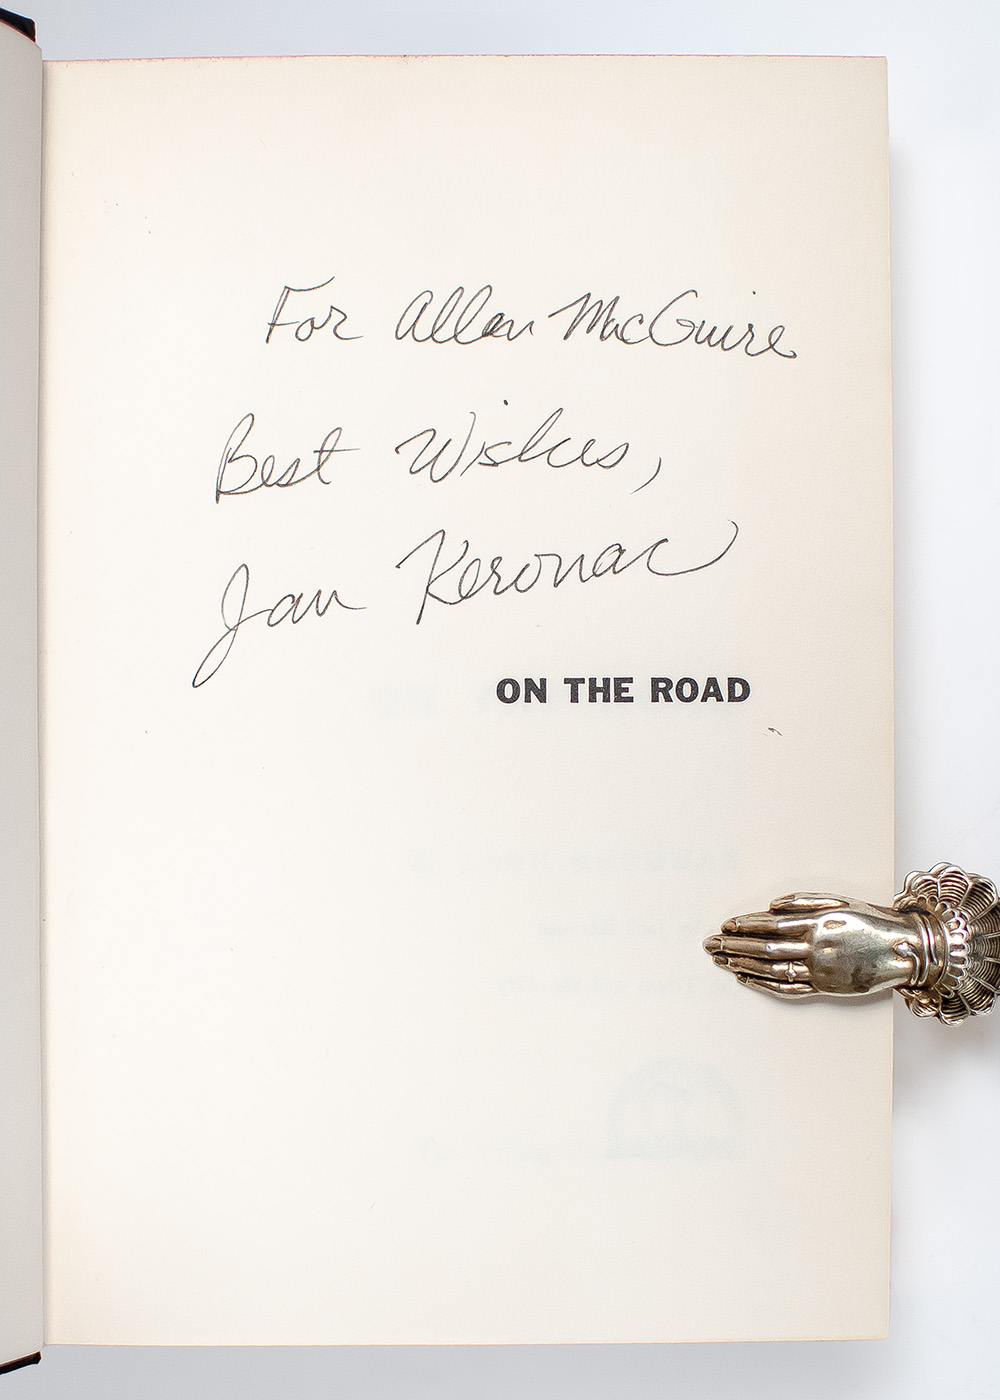 For Allan MacGuire
Best Wishes,
Jan Kerouac
ON THE ROAD